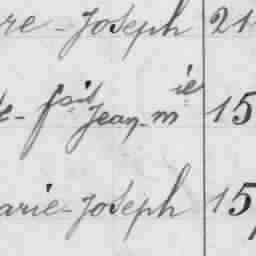 re - Joseph 21
- fait Jean-m ie 15
arie - Joseph 15